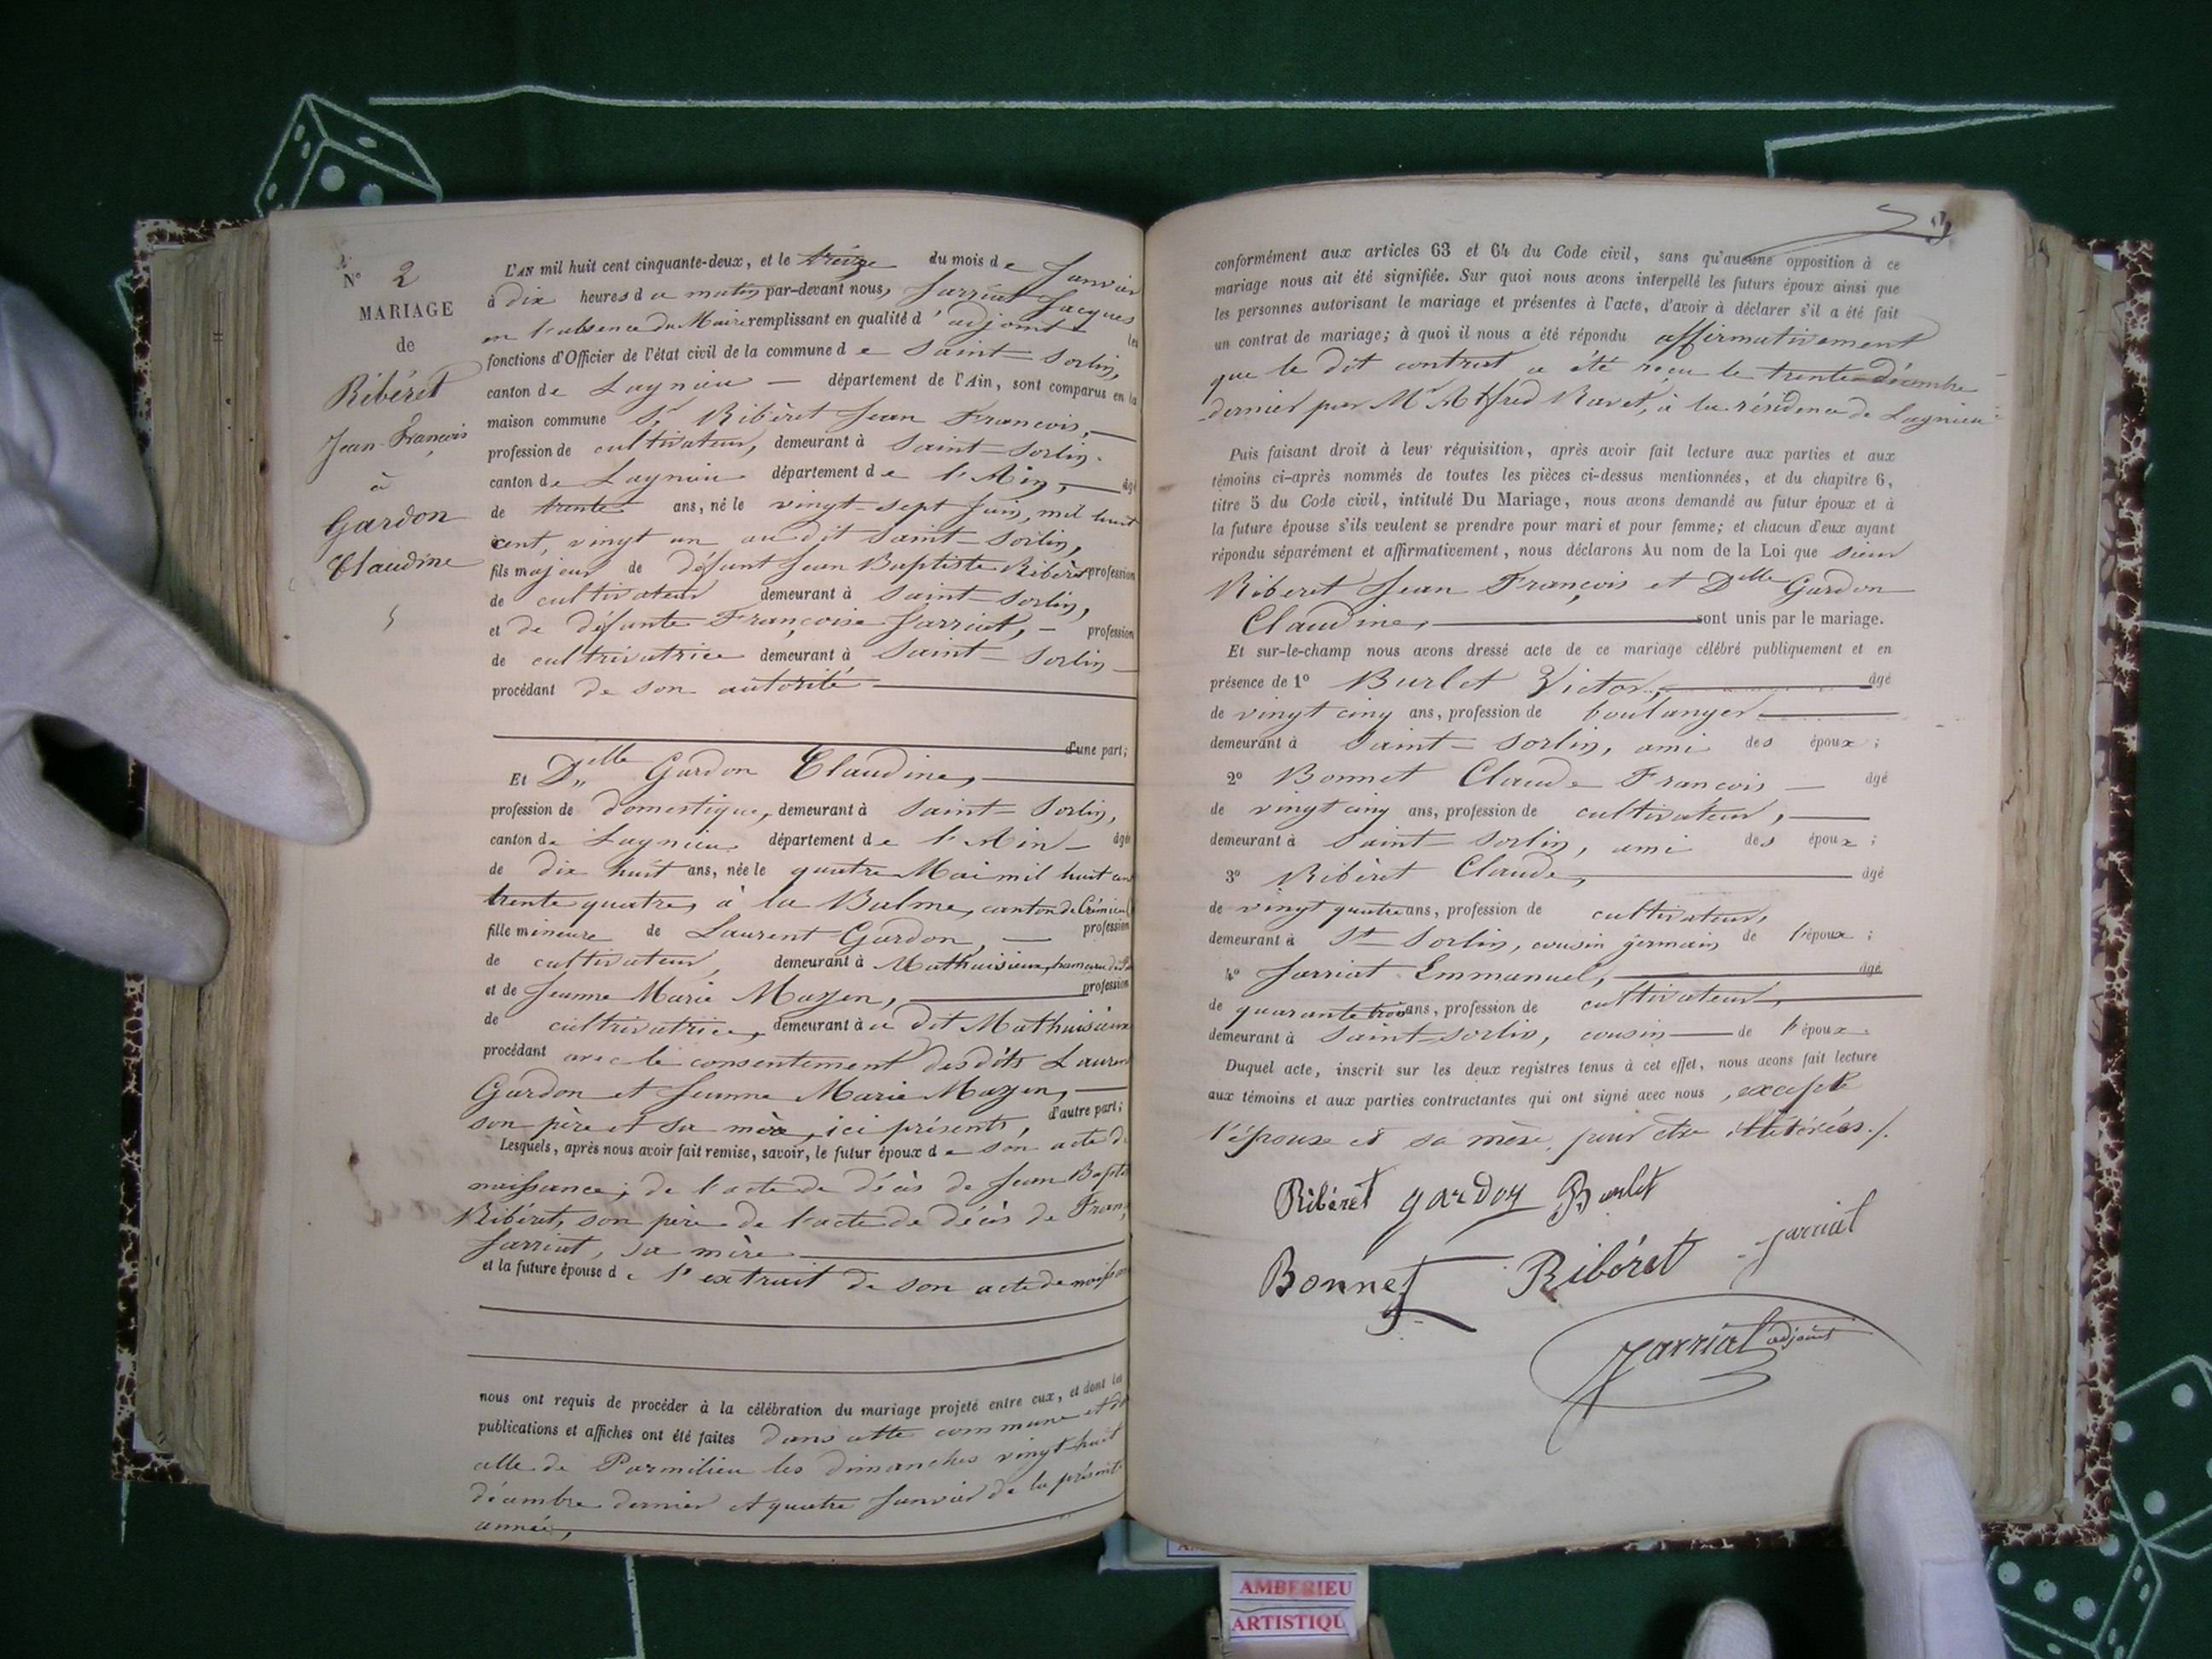 N° 2
MARIAGE
de
Ribéret
Jean-François
à
Gardon
Claudine
L'AN mil huit cent cinquante-deux, et le treize du mois de Janvier
à dix heures du matin par-devant nous, Jarriat Jacques
en l'absence du Maire remplissant en qualité d'adjoint les
fonctions d'Officier de l'état civil de la commune de Saint-Sorlin,
canton de Lagnieu — département de l'Ain, sont comparus en la
maison commune Sr Ribèret Jean François, —
profession de cultivateur, demeurant à Saint-Sorlin.
canton de Lagnieu département de l'Ain, — âgé
de trente ans, né le vingt-sept Juin, mil huit
cent, vingt un au dit Saint-Sorlin,
fils majeur de défunt Jean Baptiste Ribèret profession
de cultivateur demeurant à Saint-Sorlin,
et de défunte Françoise Jarriat, — profession
de cultivatrice demeurant à Saint-Sorlin —
procédant de son autorité
d'une part;
Et Dlle Gardon Claudine,
profession de domestique, demeurant à Saint-Sorlin,
canton de Lagnieu département de l'Ain — âgée
de dix huit ans, née le quatre Mai mil huit cent
trente quatre, à la Balme, canton de Crémieu
fille mineure de Laurent Gardon, — profession
de cultivateur, demeurant à Mathuisieux, hameau de
et de Jeanne Marie Mazen, profession
de cultrivatrice, demeurant à u dit Mathuisieux
procédant avec le consentement desdits Laurent
Gardon et Jeanne Marie Mazen, —
son père et sa mère, ici présents, d'autre part;
Lesquels, après nous avoir fait remise, savoir, le futur époux de son acte de
naissance; de l'acte de décès de Jean Bapte
Ribéret, son père de l'acte de décès de Fran,
Jarriat, sa mère
et la future épouse de l'extrait de son acte de naissance
nous ont requis de procéder à la célébration du mariage projeté entre eux, et dont les
publications et affiches ont été faites dans cette commune et de
celle de Parmilieu les dimanches vingt-huit
décembre dernier et quatre Janvier de la présente
année,
conformément aux articles 63 et 64 du Code civil, sans qu'aucune opposition à ce
mariage nous ait été signifiée. Sur quoi nous avons interpellé les futurs époux ainsi que
les personnes autorisant le mariage et présentes à l'acte, d'avoir à déclarer s'il a été fait
un contrat de mariage; à quoi il nous a été répondu affirmativement
que le dit contrat a été reçu le trente décembre
dernier par Me Alfred Ravet, à la résidence de Lagnieu
Puis faisant droit à leur réquisition, après avoir fait lecture aux parties et aux
témoins ci-après nommés de toutes les pièces ci-dessus mentionnées, et du chapitre 6,
titre 5 du Code civil, intitulé Du Mariage, nous avons demandé au futur époux et à
la future épouse s'ils veulent se prendre pour mari et pour femme; et chacun d'eux ayant
répondu séparément et affirmativement, nous déclarons Au nom de la Loi que sieur
Riberet Jean François et Dlle Gardon
Claudine, sont unis par le mariage.
Et sur-le-champ nous avons dressé acte de ce mariage célébré publiquement et en
présence de 1° Burlet Victor, âgé
de vingt cinq ans, profession de boulanger
demeurant à Saint-Sorlin, ami des époux;
2° Bonnet Claude François — âgé
de vingt cinq ans, profession de cultivateur,
demeurant à Saint-Sorlin, ami des époux;
3° Ribèret Claude, âgé
de vingt quatre ans, profession de cultivateur,
demeurant à St Sorlin, cousin germain de l'époux;
4° Jarriat Emmanuel, âgé
de quarante trois ans, profession de cultivateur,
demeurant à Saint-Sorlin, cousin — de l'époux.
Duquel acte, inscrit sur les deux registres tenus à cet effet, nous avons fait lecture
aux témoins et aux parties contractantes qui ont signé avec nous, excepté
l'épouse et sa mère, pour être illétérées./.
Ribéret gardon Burlet
Bonnet Ribéret Jarriat
Jarriat adjoint
AMBERIEU
ARTISTIQU